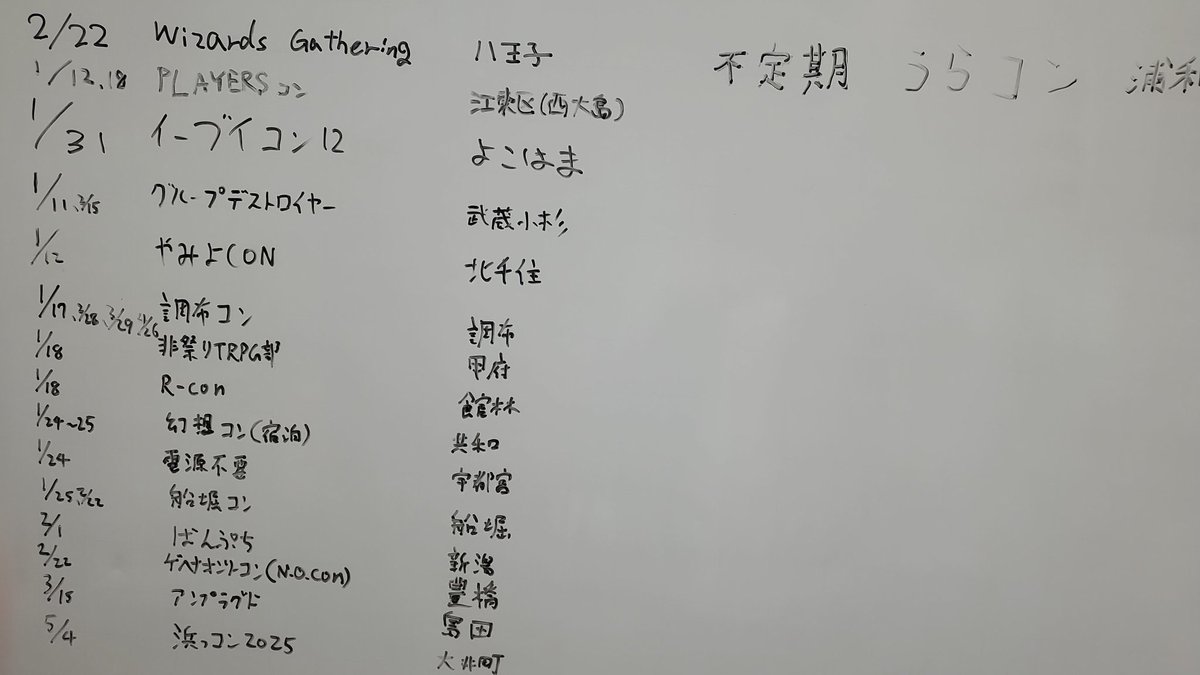 2/22 Wizards Gathering 八王子
1/12,18 PLAYERSコン 江東区(西大島)
1/31 イーブイコン12 よこはま
1/11, 3/15 グループデストロイヤー 武蔵小杉
1/12 やみよCON 北千住
1/17, 2/28, 3/29, 4/26 調布コン 調布
1/18 非祭りTRPG部 甲府
1/18 R-con 館林
1/24~25 幻想コン(宿泊) 共和
1/24 電源不要 宇都宮
1/25, 2/22 船堀コン 船堀
2/1 ばんぷち 新潟
2/22 ゲヘナオンリーコン(N.O.con) 豊橋
3/15 アンプラグド 島田
5/4 浜っコン2025 大井町
不定期 うらコン 浦和